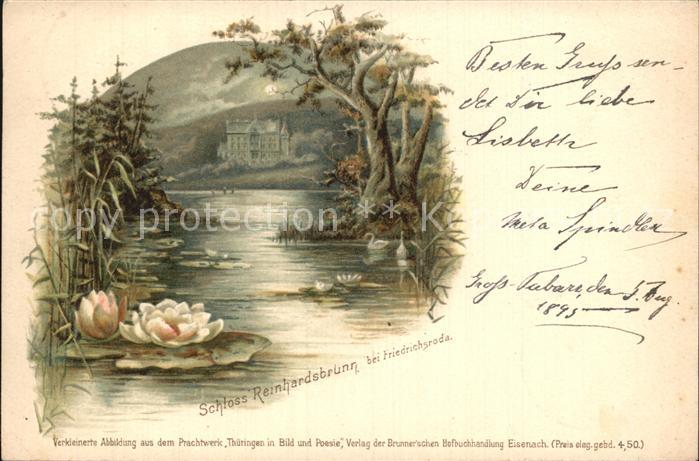 Besten Gruß sen-
det Dir liebe
Lisbeth
Deine
Meta Spindler
Groß-Tabarz, den 5. Aug.
1895
Schloss Reinhardsbrunn, bei Friedrichsroda.
Verkleinerte Abbildung aus dem Prachtwerk „Thüringen in Bild und Poesie“, Verlag der Brunner'schen Hofbuchhandlung Eisenach. (Preis eleg. gebd. 4,50.)
copy protection ***